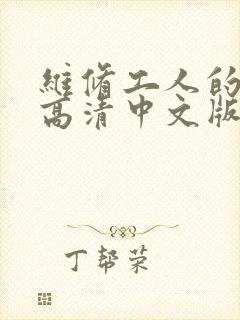 維脩工人的
高清中文版
丁帮荣